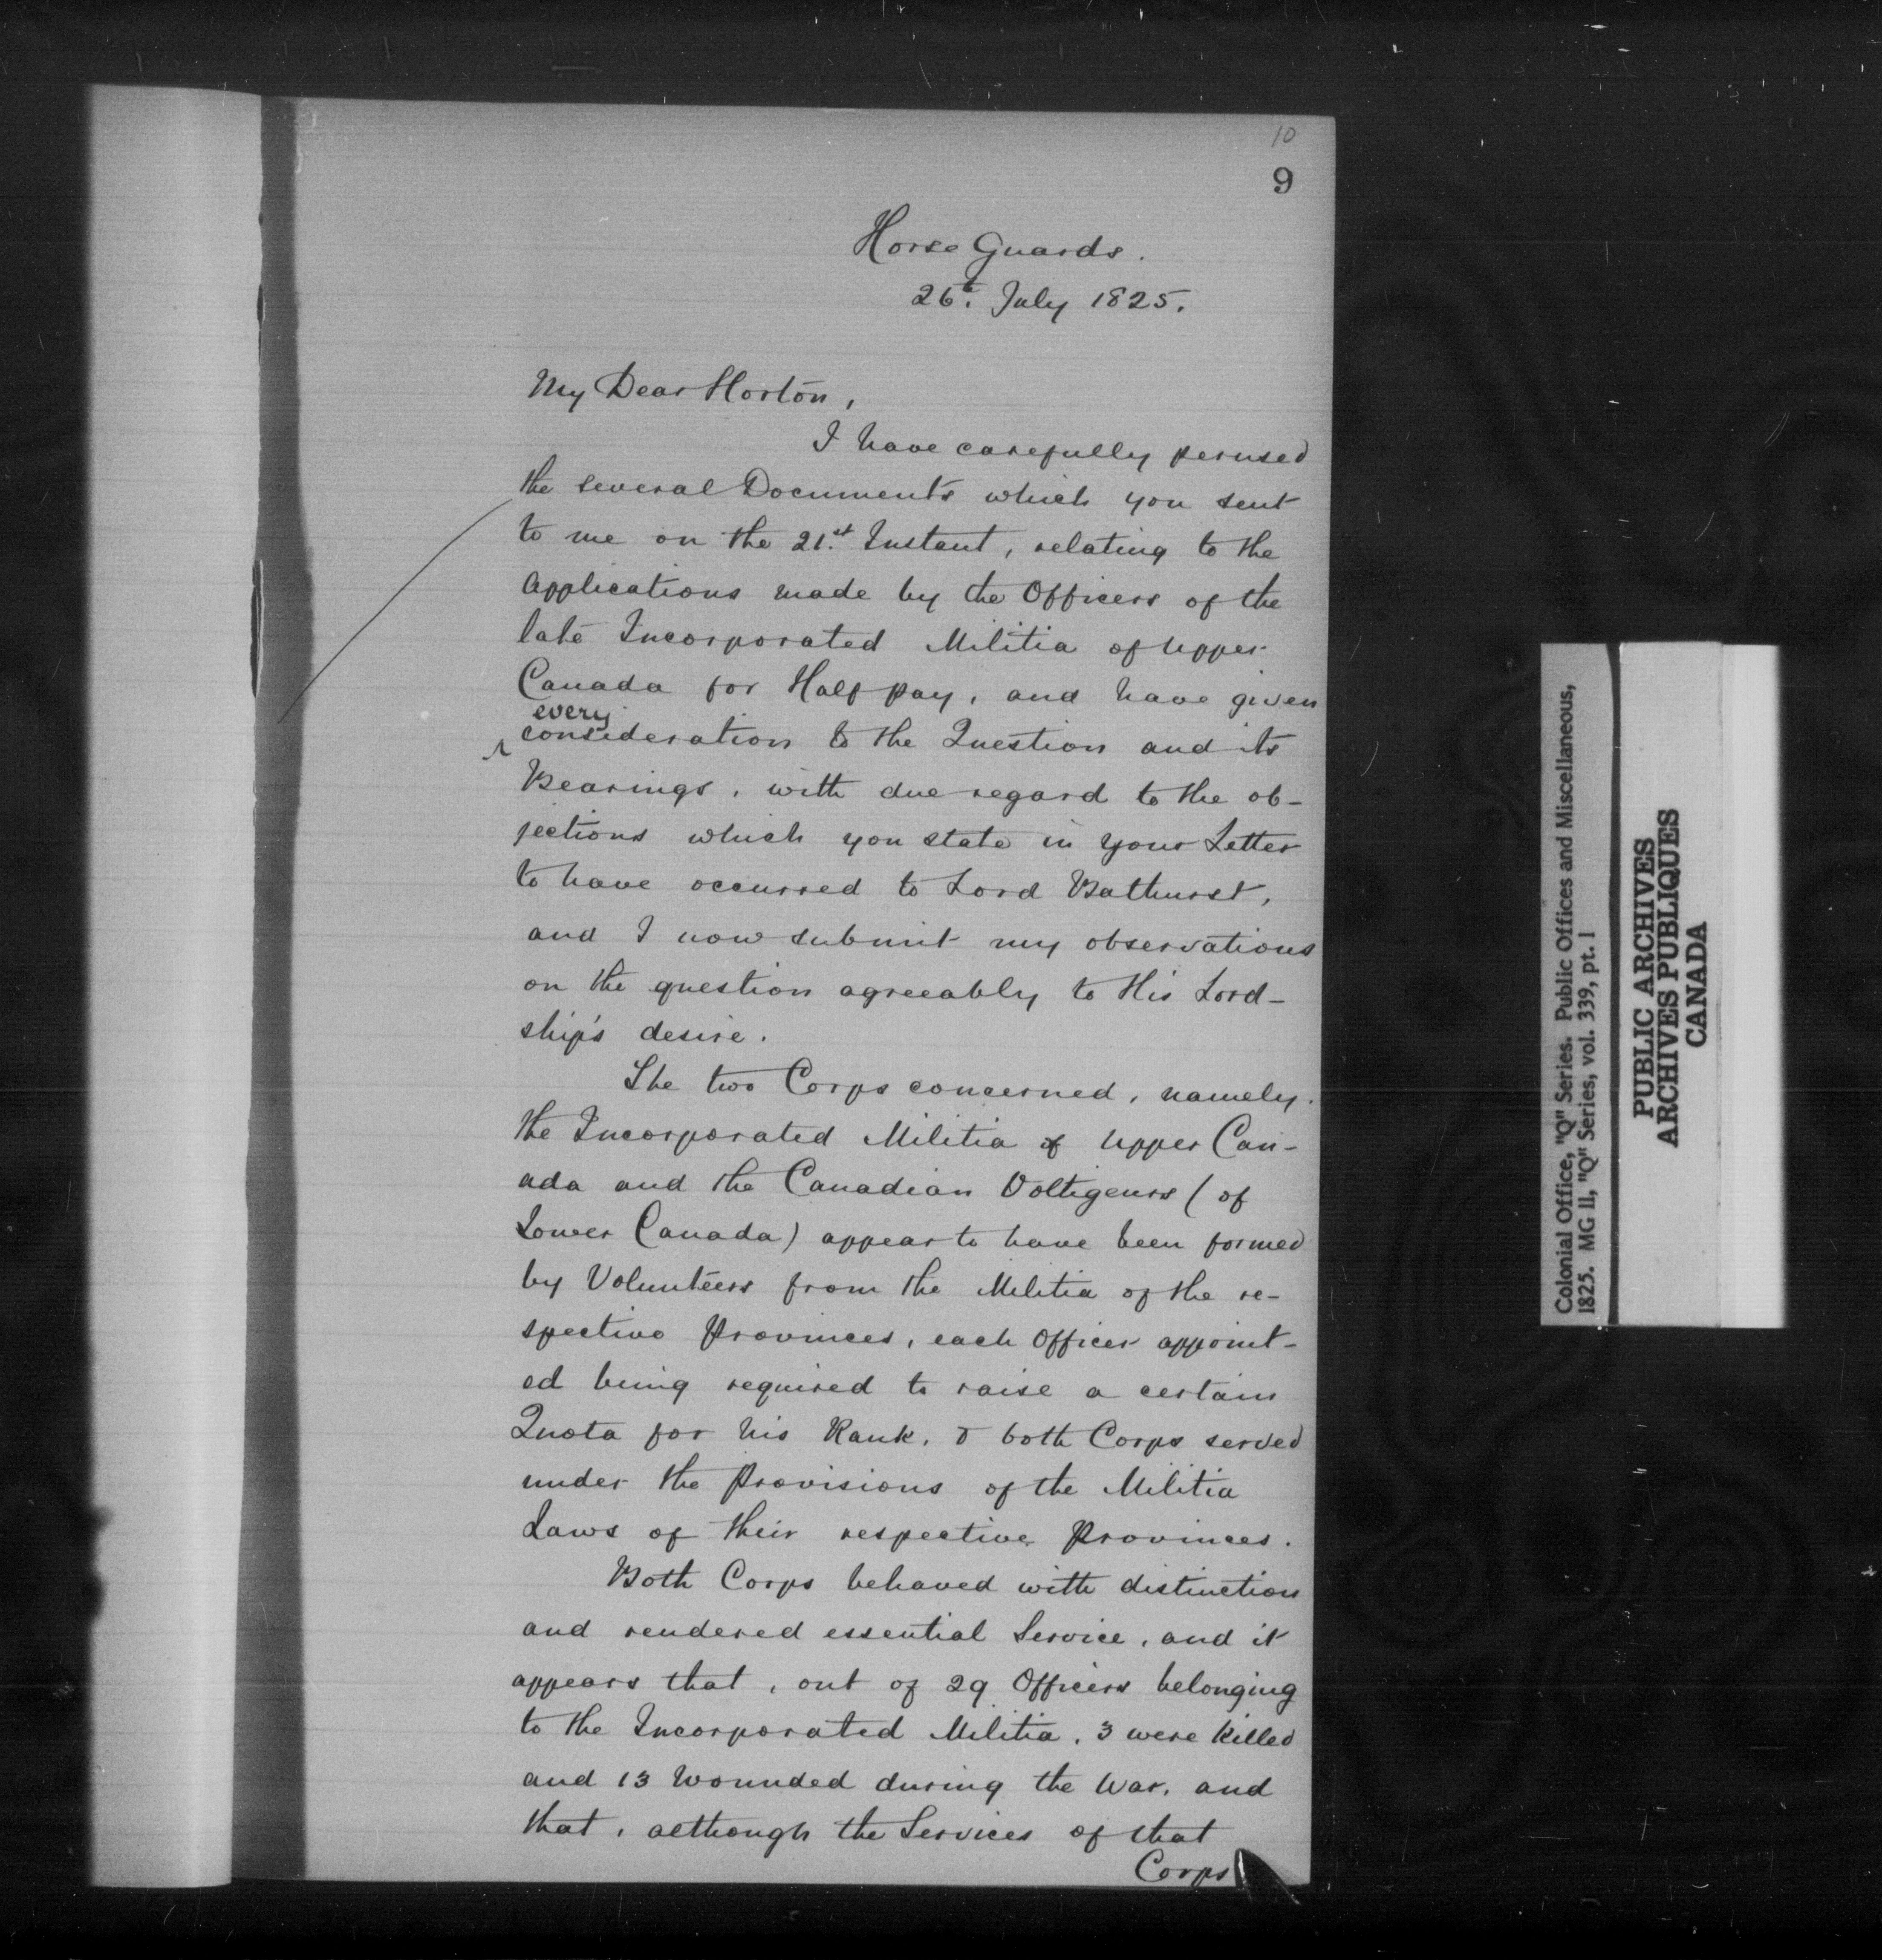 10
9
Horse Guards.
26th. July 1825.
My Dear Horton,
I have carefully perused
the several Documents which you sent
to me on the 21st. Instant, relating to the
applications made by the Officers of the
late Incorporated Militia of Upper
Canada for Half pay, and have given
every
consideration to the Question and its
Bearings, with due regard to the ob-
jections which you state in your Letter
to have occurred to Lord Bathurst,
and I now submit my observations
on the question agreeably to His Lord-
ship's desire.
The two Corps concerned, namely.
the Incorporated Militia of Upper Can-
ada and the Canadian Voltigeurs (of
Lower Canada) appear to have been formed
by Volunteers from the Militia of the re-
spective Provinces, each Officer appoint-
ed being required to raise a certain
Quota for his Rank, & both Corps served
under the Provisions of the Militia
Laws of their respective Provinces.
Both Corps behaved with distinction
and rendered essential Service, and it
appears that, out of 29 Officers belonging
to the Incorporated Militia, 3 were killed
and 13 wounded during the War, and
that, although the Services of that
Corps
Colonial Office, "Q" Series. Public Offices and Miscellaneous,
1825. MG 11, "Q" Series, vol. 339, pt. 1
PUBLIC ARCHIVES
ARCHIVES PUBLIQUES
CANADA